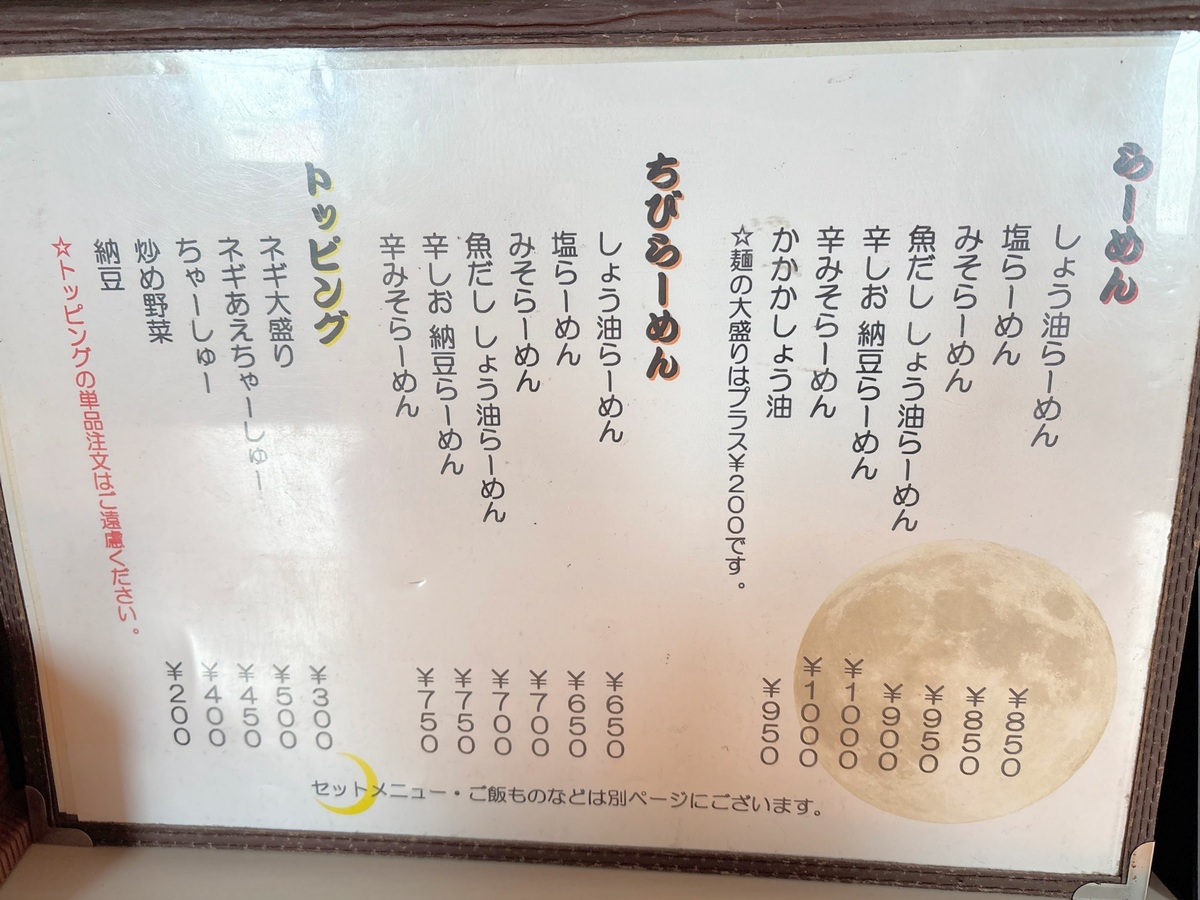 らーめん
しょう油らーめん ¥850
塩らーめん ¥850
みそらーめん ¥950
魚だし しょう油らーめん ¥900
辛しお 納豆らーめん ¥1000
辛みそらーめん ¥1000
かかかしょう油 ¥950
☆麺の大盛りはプラス¥200です。
ちびらーめん
しょう油らーめん ¥650
塩らーめん ¥650
みそらーめん ¥700
魚だし しょう油らーめん ¥700
辛しお 納豆らーめん ¥750
辛みそらーめん ¥750
トッピング
ネギ大盛り ¥300
ネギあえちゃーしゅー ¥500
ちゃーしゅー ¥450
炒め野菜 ¥400
納豆 ¥200
☆トッピングの単品注文はご遠慮ください。
セットメニュー・ご飯ものなどは別ページにございます。